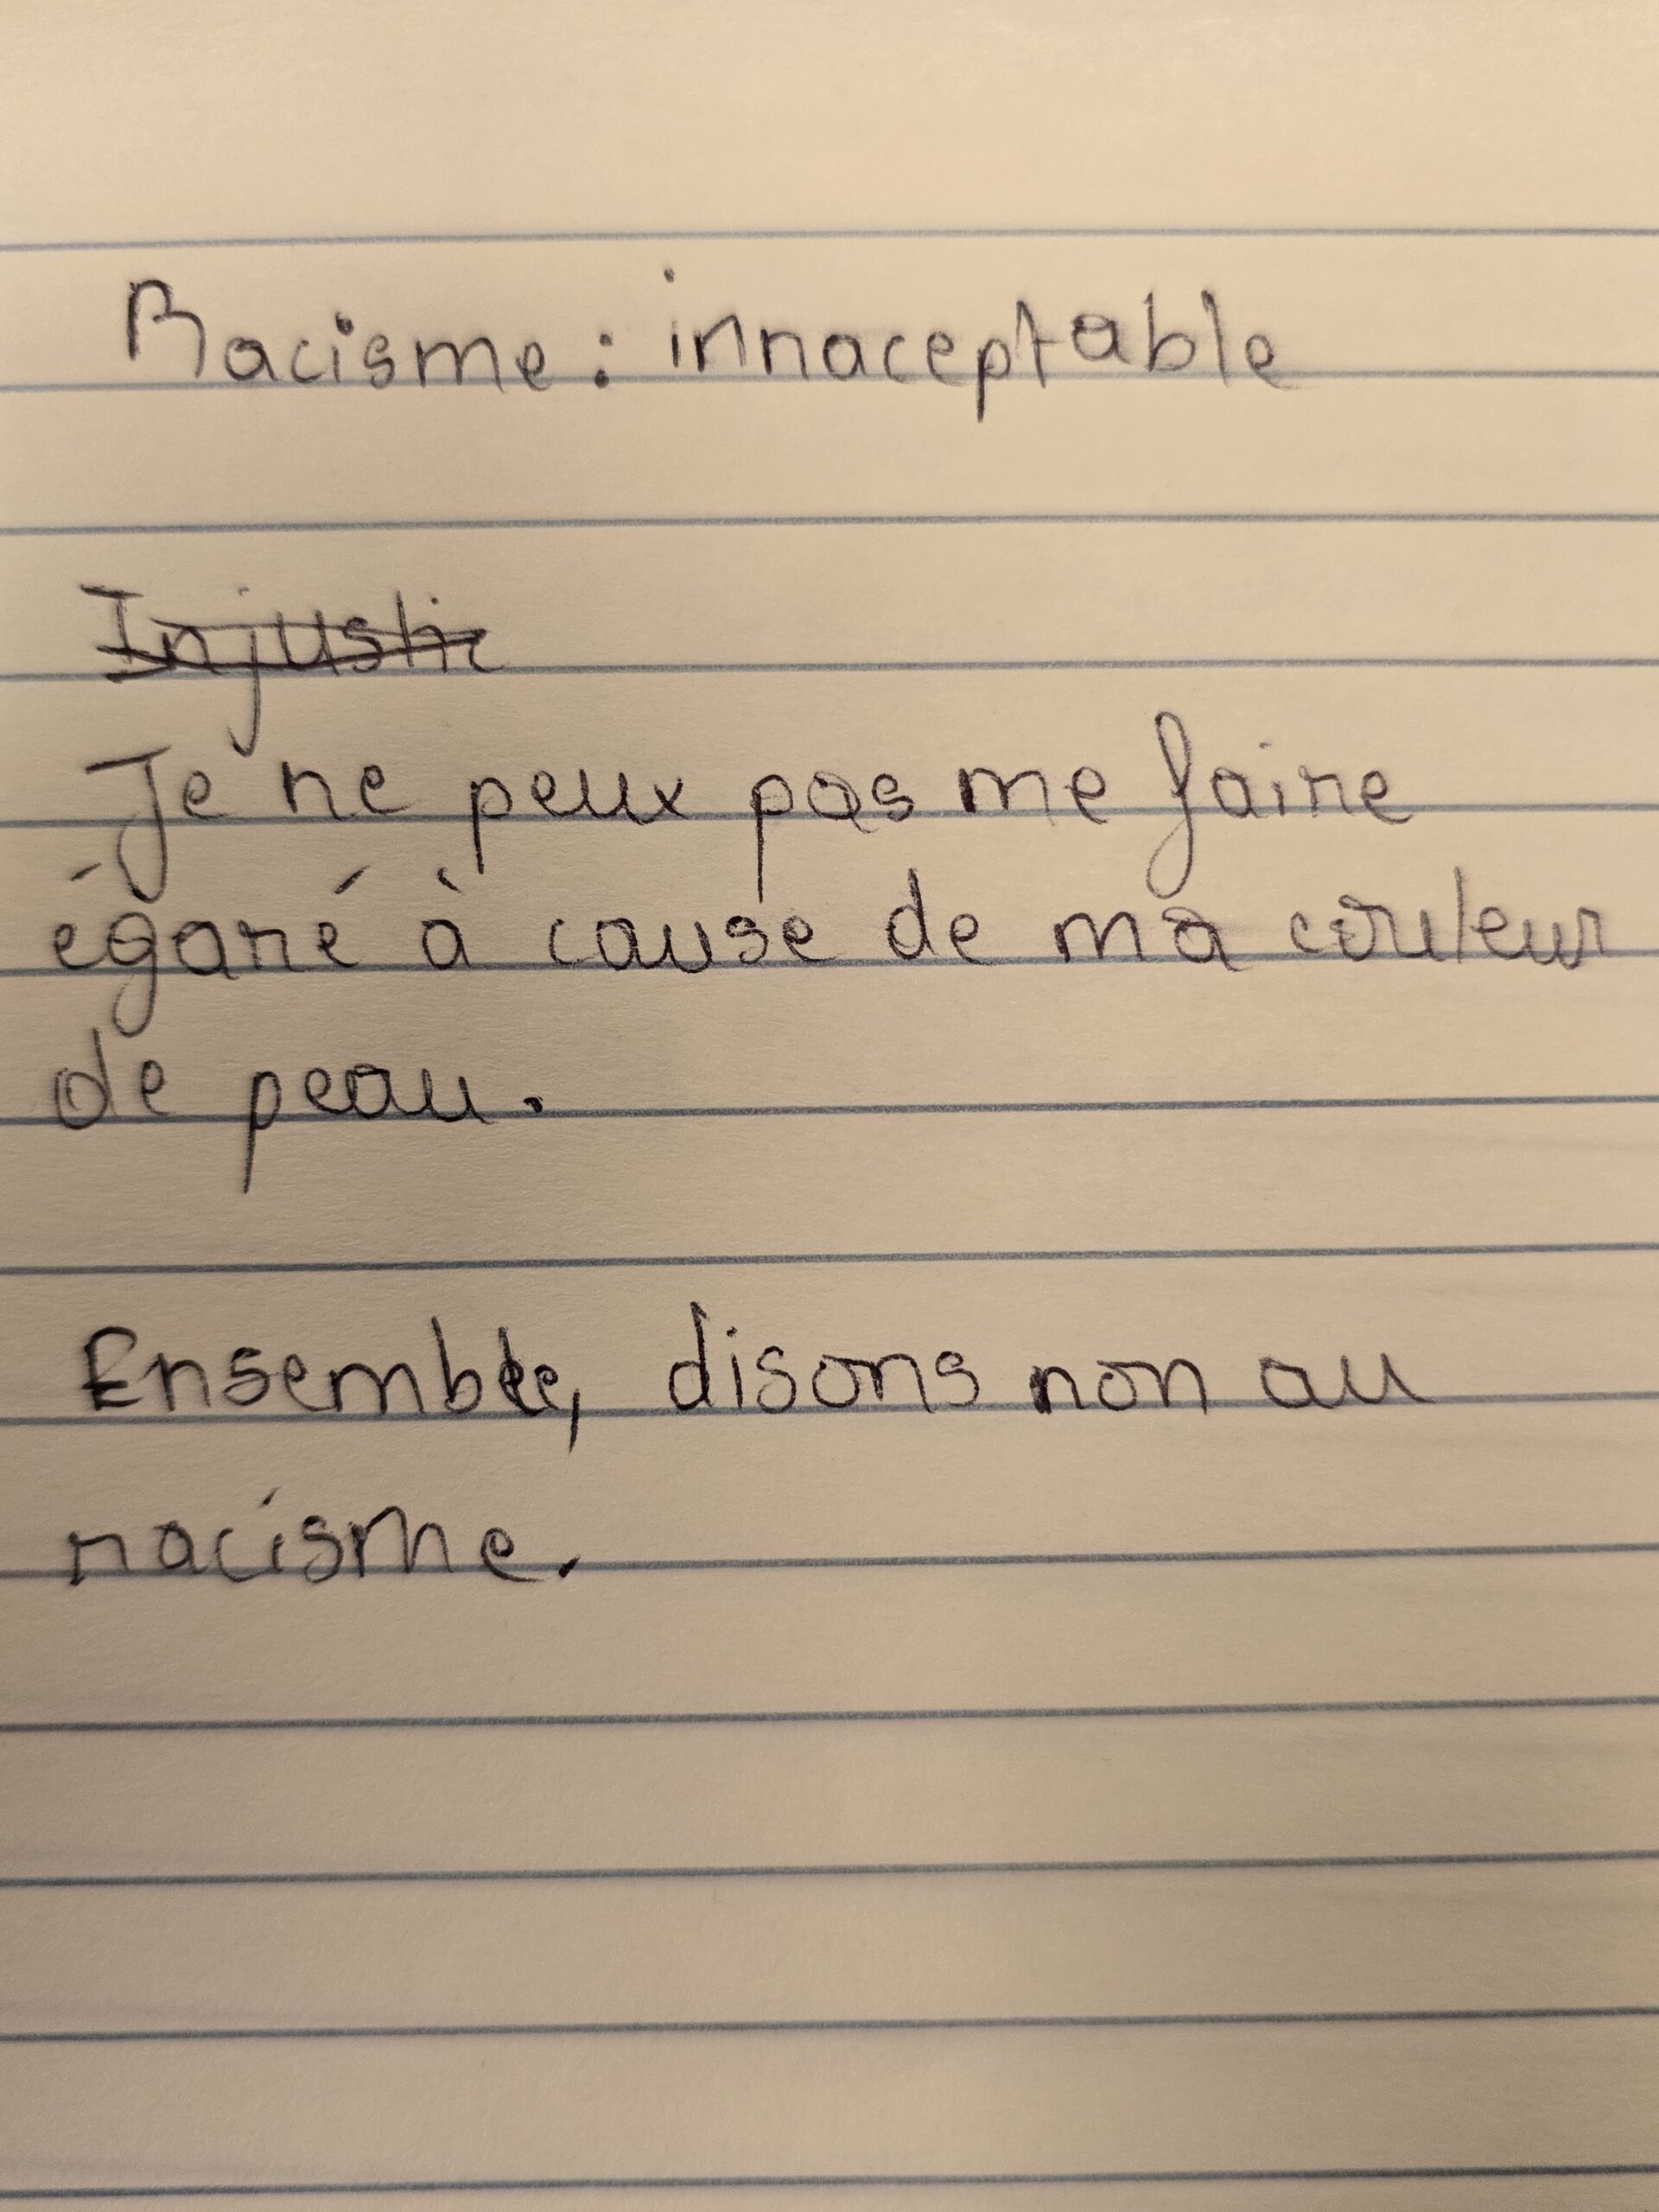 Racisme : innaceptable
Injustic
Je ne peux pas me faire
égaré à cause de ma couleur
de peau.
Ensemble, disons non au
racisme.